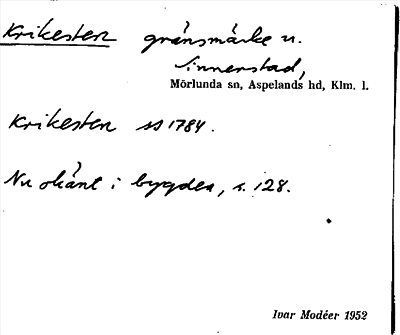 Krikesten gränsmärke u.
Sinnerstad,
Mörlunda sn, Aspelands hd, Klm. l.
Krikesten ss 1784.
Nu okänt i bygden, s. 128.
Ivar Modéer 1952